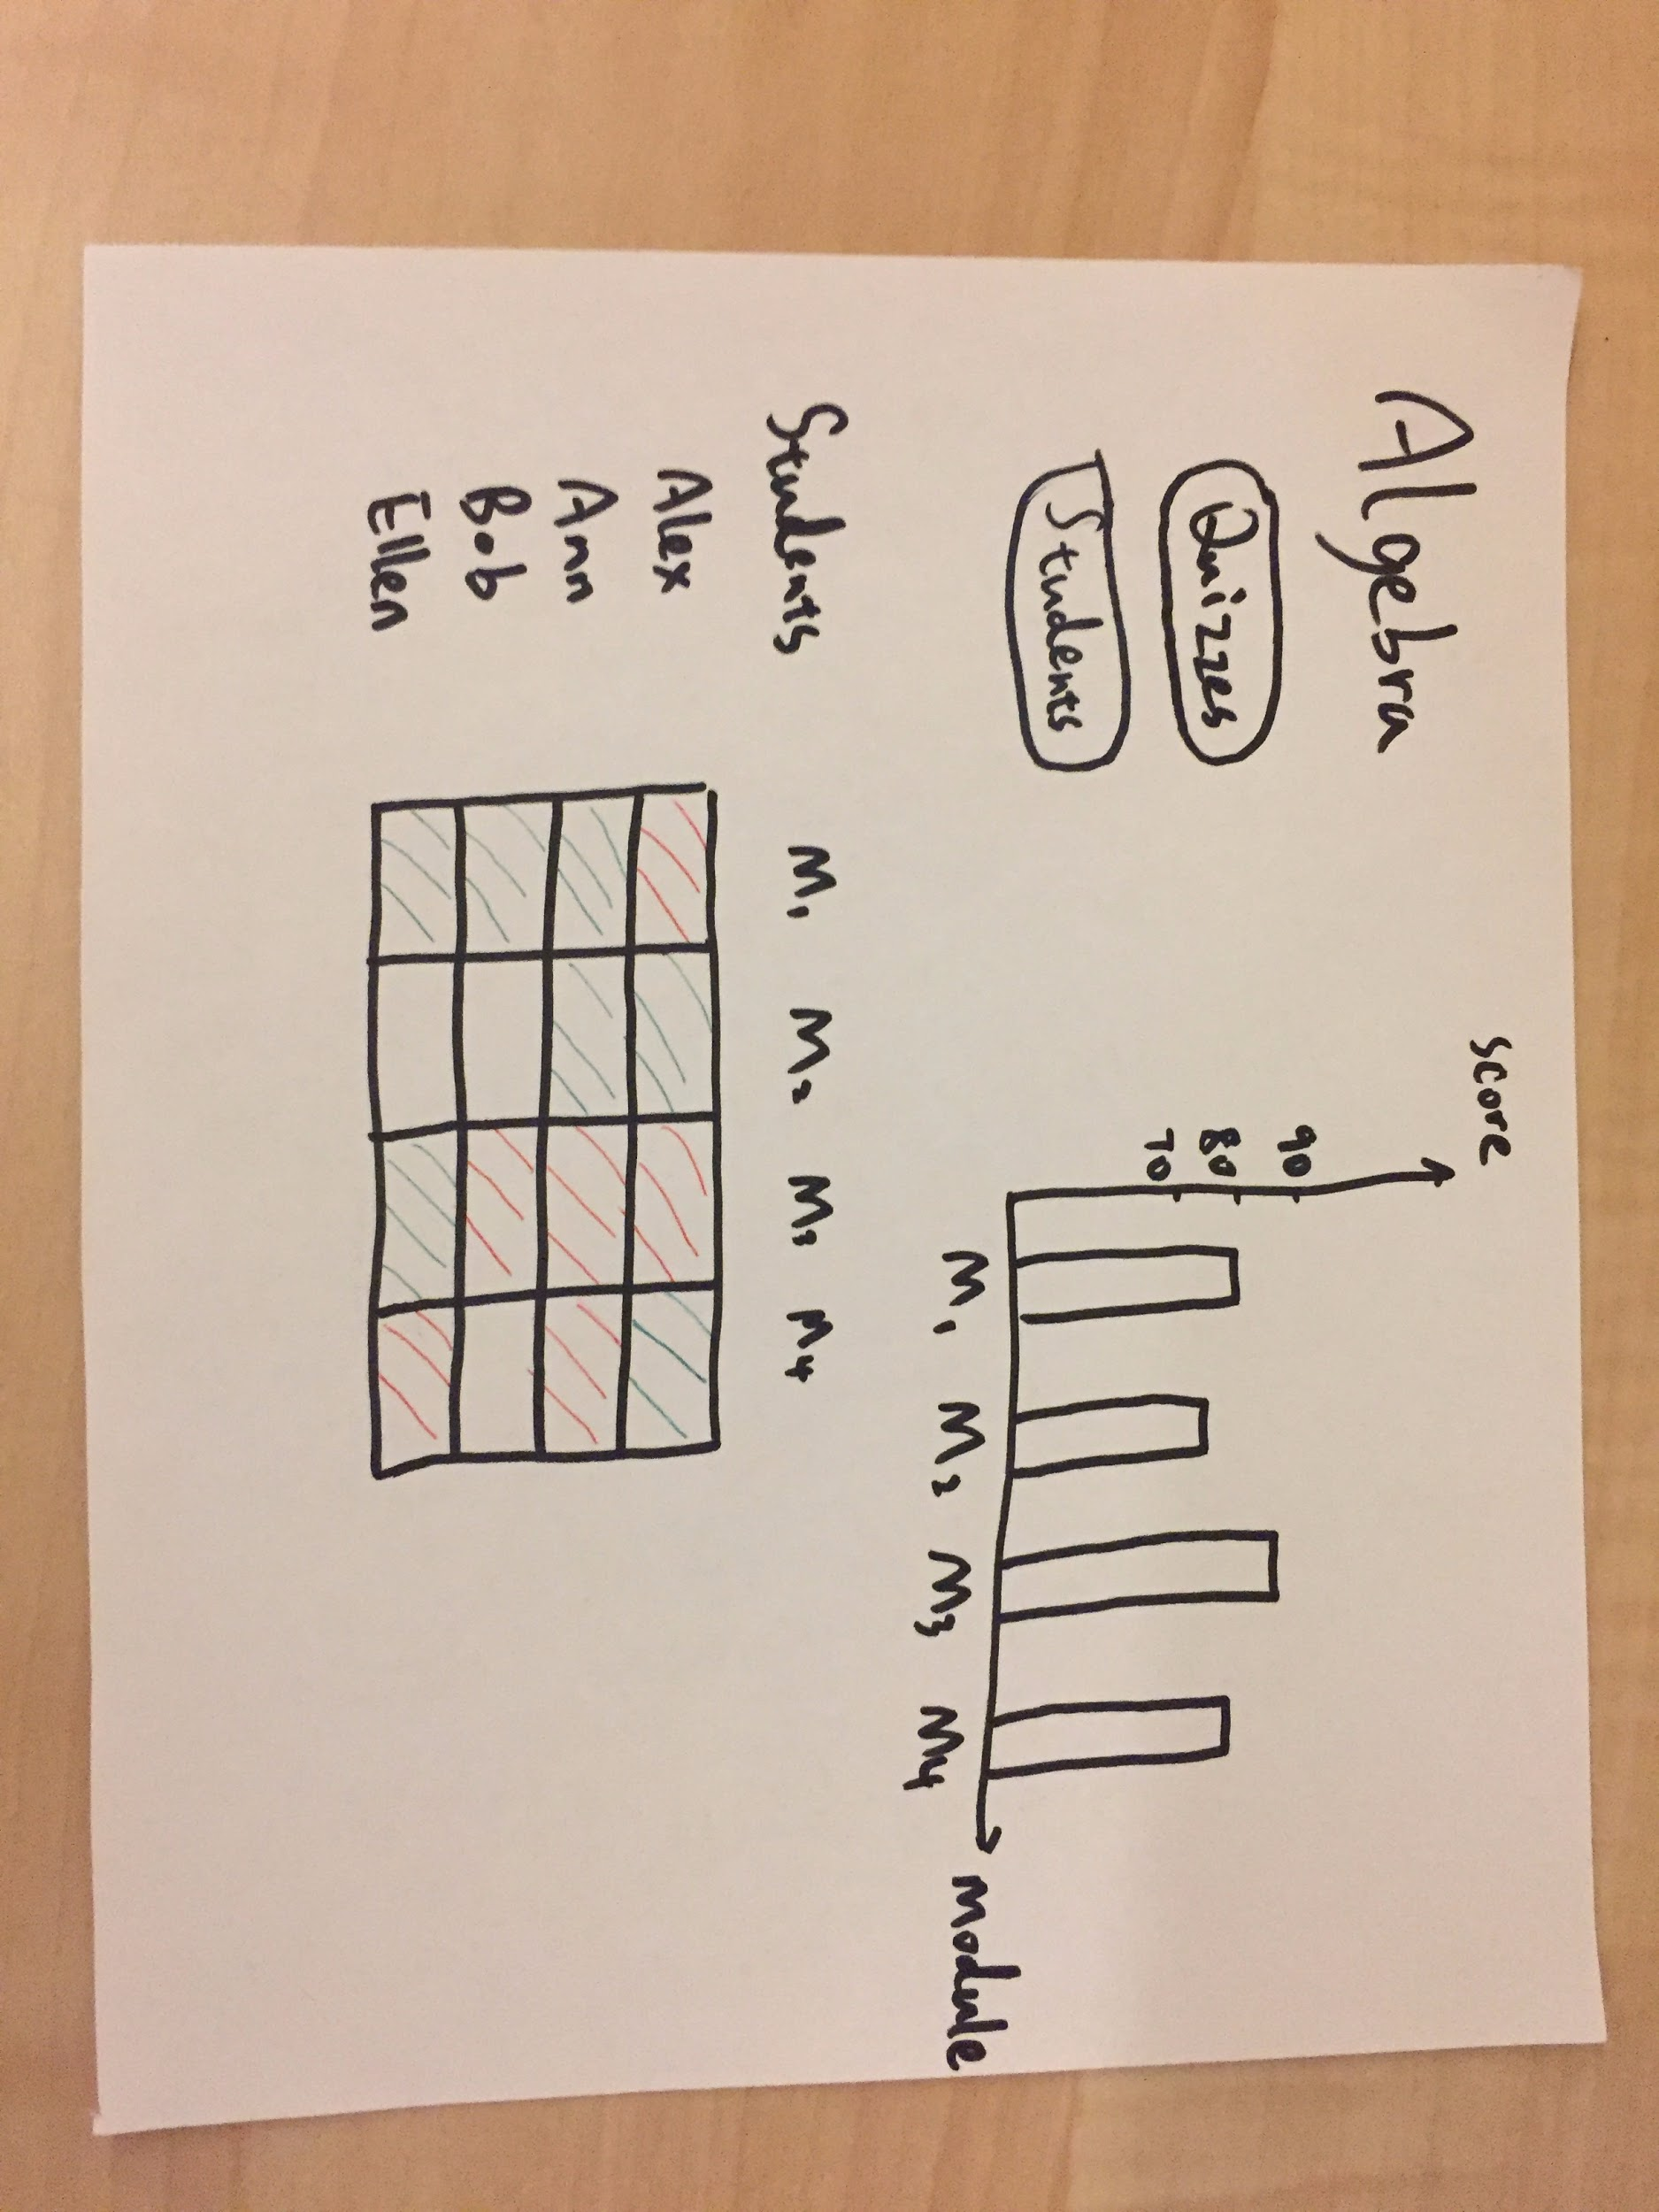 Algebra
Quizzes
Students
score
90
80
70
M1 M2 M3 M4
module
Students M1 M2 M3 M4
Alex
Ann
Bob
Ellen